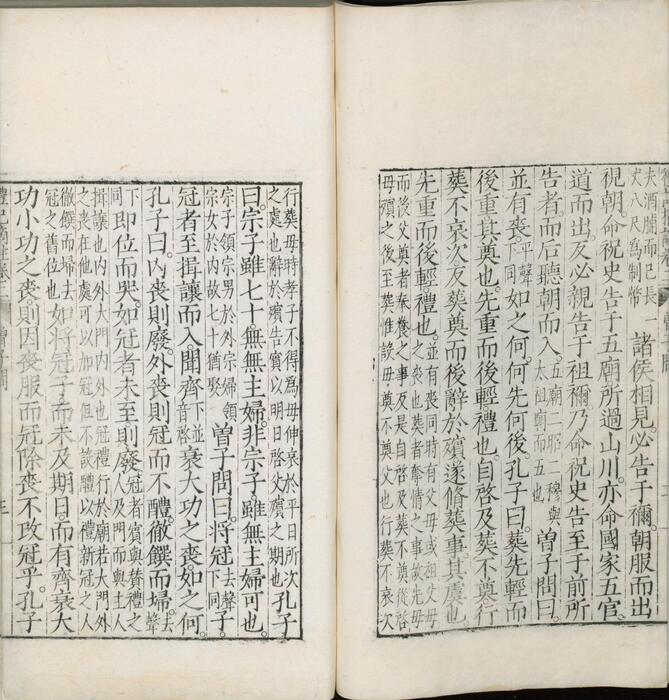 夫酒脯而已長一
丈八尺爲制幣
諸侯相見必告于禰朝服而出
視朝命祝史告于五廟所過山川亦命國家五官
道而出反必親告于祖禰乃命祝史告至于前所
告者而后聽朝而入
五廟二昭二穆與
太祖廟而五也
曾子問曰
並有喪
平聲
下同
如之何何先何後孔子曰葬先輕而
後重其奠也先重而後輕禮也自啓及葬不奠行
葬不哀次反葬奠而後辭於殯遂脩葬事其虞也
先重而後輕禮也
並有喪同時有父母或祖父母
之喪也葬者奪情之事故先母
而後父奠者奉養之事及是自啓及葬不奠從啓
母殯之後至葬惟設母奠不奠父也行葬不哀次
行葬母時孝子不得爲母伸哀於平日所次
之處也辭於殯告賓以明日啓父殯之期也
孔子
曰宗子雖七十無無主婦非宗子雖無主婦可也
宗子領宗男於外宗婦領
宗女於内故七十猶娶
曾子問曰將冠
去聲
下同
子
冠者至揖讓而入聞齊
下並
音咨
衰大功之喪如之何
孔子曰内喪則廢外喪則冠而不醴徹饌而埽
去
聲
下同
即位而哭如冠者未至則廢
冠者賓與贊禮之
人及門而與主人
揖讓也内外大門内外也冠禮行於廟若大門外
之喪在他處可以加冠但不設醴以禮新冠之人
徹饌而埽去
冠之舊位也
如將冠子而未及期日而有齊衰大
功小功之喪則因喪服而冠除喪不改冠乎孔子
曾子問